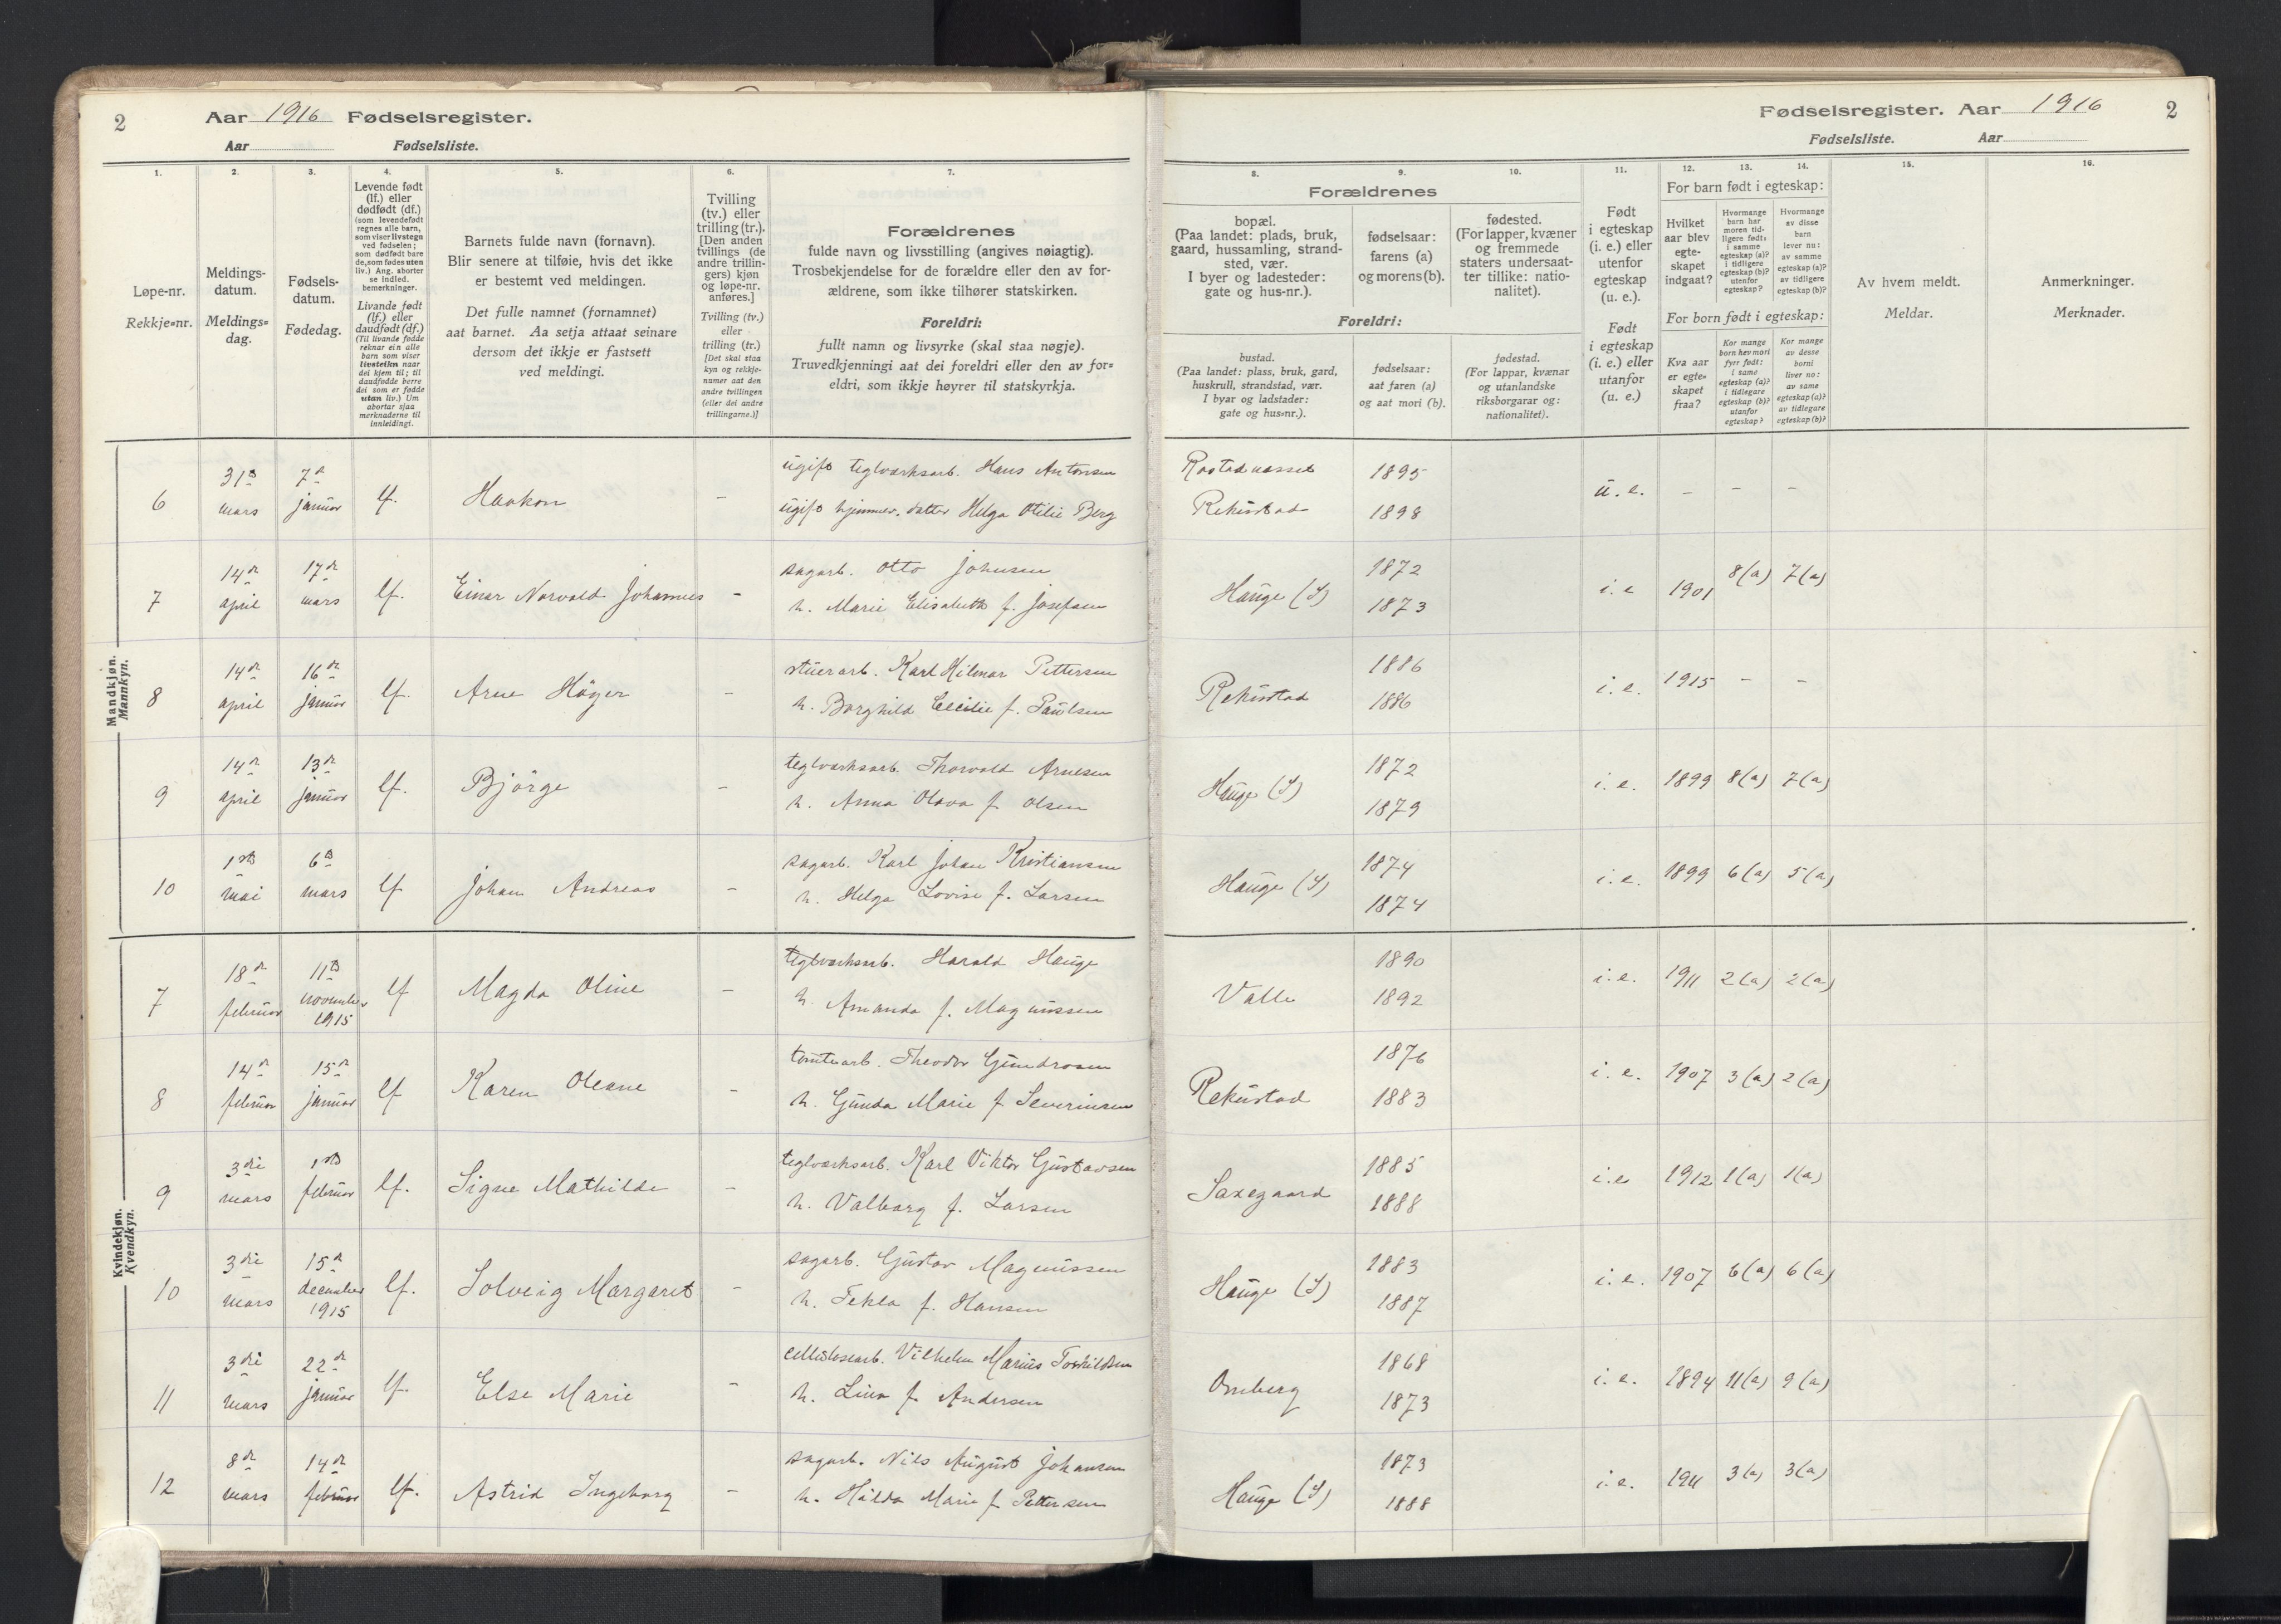 2 Aar 1916 Fødselsregister.
Aar Fødselsliste.
Fødselsregister. Aar 1916 2
Fødselsliste. Aar
1.
Løpe-nr.
Rekkje-nr.
2.
Meldings-
datum.
Meldings-
dag.
3.
Fødsels-
datum.
Fødedag.
4.
Levende født
(lf.) eller
dødfødt (df.)
(som levendefødt
regnes alle barn,
som viser livstegn
ved fødselen;
som dødfødt bare
de, som fødes uten
liv.) Ang. aborter
se indled.
bemerkninger.
Livande født
(lf.) eller
daudfødt (df.)
(Til livande fødde
reknar ein alle
barn som viser
livsteikn naar
dei kjem til; til
daudfødde berre
dei som er fødde
utan liv.) Um
abortar sjaa
merknaderne til
innleidingi.
5.
Barnets fulde navn (fornavn).
Blir senere at tilføie, hvis det ikke
er bestemt ved meldingen.
Det fulle namnet (fornamnet)
aat barnet. Aa setja attaat seinare
dersom det ikkje er fastsett
ved meldingi.
6.
Tvilling
(tv.) eller
trilling (tr.).
[Den anden
tvillings (de
andre trillin-
gers) kjøn
og løpe-nr.
anføres.]
Tvilling (tv.)
eller
trilling (tr.)
[Det skal staa
kyn og rekkje-
numer aat den
andre tvillingen
(eller dei andre
trillingarne.)]
7.
Forældrenes
fulde navn og livsstilling (angives nøiagtig).
Trosbekjendelse for de forældre eller den av for-
ældrene, som ikke tilhører statskirken.
Foreldri:
fullt namn og livsyrke (skal staa nøgje).
Truvedkjenningi aat dei foreldri eller den av for-
eldri, som ikkje høyrer til statskyrkja.
Forældrenes
8.
bopæl.
(Paa landet: plads, bruk,
gaard, hussamling, strand-
sted, vær.
I byer og ladesteder:
gate og hus-nr.).
9.
fødselsaar:
farens (a)
og morens (b).
10.
fødested.
(For lapper, kvæner
og fremmede
staters undersaat-
ter tillike: natio-
nalitet).
Foreldri:
bustad.
(Paa landet: plass, bruk, gard,
huskrull, strandstad, vær.
I byar og ladstader:
gate og hus-nr.).
fødselsaar:
aat faren (a)
og aat mori (b).
fødestad.
(For lappar, kvænar
og utanlandske
riksborgarar og:
nationalitet).
11.
Født
i egteskap
(i. e.) eller
utenfor
egteskap
(u. e.).
Født
i egteskap
(i. e.) eller
utanfor
(u. e.)
For barn født i egteskap:
12.
Hvilket
aar blev
egte-
skapet
indgaat?
13.
Hvormange
barn har
moren tid-
ligere født:
i samme
egteskap (a)?
i tidligere
egteskap (b)?
utenfor
egteskap?
14.
Hvormange
av disse
barn
lever nu:
av samme
egteskap (a)?
av tidligere
egteskap (b)?
For born født i egteskap:
Kva aar
er egte-
skapet
fraa?
Kor mange
born hev mori
fyrr født:
i same
egteskap (a)?
i tidlegare
egteskap (b)?
utanfor
egteskap?
Kor mange
av desse
borni
liver no:
av same
egteskap (a)?
av tidlegare
egteskap (b)?
15.
Av hvem meldt.
Meldar.
16.
Anmerkninger.
Merknader.
Mandkjøn.
Mannkyn.
6 31te mars 7de januar lf. Haakon - ugift teglverksarb. Hans Antonsen
ugift hjemmev. datter Helga Otilie Berg
Rostadnesset 1895
Rekustad 1898 u. e. - - -
7 14de april 17de mars lf. Einar Norvald Johannes - sagarb. Otto Johnsen
h. Marie Elisabeth f. Josefsen
Hauge (S) 1872
1873 i. e 1901 8(a) 7(a)
8 14de april 16de januar lf. Arne Höger - stuerarb. Karl Hilmar Pettersen
h. Borghild Cecilie f. Paulsen
Rekustad 1886
1886 i. e. 1915 - -
9 14de april 13de januar lf. Bjørge - teglverksarb. Thorvald Arnesen
h. Anna Olava f. Olsen
Hauge (S) 1872
1879 i. e. 1899 8(a) 7(a)
10 1ste mai 6te mars lf Johan Andreas - sagarb. Karl Johan Kristiansen
h. Helga Lovise f. Larsen
Hauge (S) 1874
1874 i. e. 1899 6(a) 5(a)
Kvindekjøn.
Kvendkyn.
7 18de februar 11te november 1915 lf Magda Oline - teglverksarb. Harald Hauge
h. Amanda f. Magnussen
Valle 1890
1892 i. e. 1911 2(a) 2(a)
8 14de februar 15de januar lf Karen Oleane - tomtearb. Theodor Gundrosen
h. Gunda Marie f Severinsen
Rekustad 1876
1883 i. e. 1907 3(a) 2(a)
9 3die mars 1ste februar lf. Signe Mathilde - teglverksarb. Karl Viktor Gustavsen
h. Valborg f. Larsen
Saxegaard 1885
1888 i. e 1912 1(a) 1(a)
10 3die mars 15de december 1915 lf. Solveig Margaret - sagarb. Gustav Magnussen
h. Tekla f. Hansen
Hauge (S) 1883
1887 i. e. 1907 6(a) 6(a)
11 3die mars 22de januar lf. Else Marie - cellulosearb. Vilhelm Marius Torkildsen
h. Lina f. Andersen
Omberg 1868
1873 i. e. 1894 11(a) 9(a)
12 8de mars 14de februar lf. Astrid Ingeborg - sagarb. Nils August Johansen
h. Hilda Marie f Pettersen
Hauge (S) 1873
1888 i. e. 1911 3(a) 3(a)